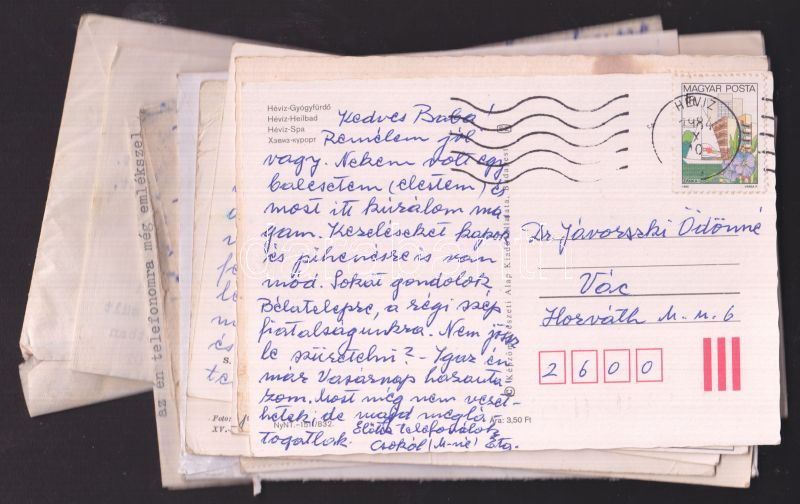 Hévíz-Gyógyfürdő
Hévíz-Heilbad
Hévíz-Spa
Хэвиз-курорт
Kedves Baba!
Remélem jól
vagy. Nekem volt egy
balesetem (elestem) és
most itt kúrálom ma
gam. Kezeléseket kapok
és pihenésre is van
mód. Sokat gondolok
Bélatelepre, a régi szép
fiatalságunkra. Nem jössz
le szüretelni? - Igaz én
már Vasárnap hazauta
zom. Most még nem vezet-
hetek, de majd meglá
togatlak. Előtte telefonálok
Csókol (M-né) Eta.
NyNT.-151/832.
Ára: 3,50 Ft
© Képzőművészeti Alap Kiadóvállalata, Budapest
MAGYAR POSTA
HÉVÍZ
1984
X
10
Dr. Jávorszki Ödönné
Vác
Horváth M. u. 6
2600
az én telefonomra még emlékszel
Foto:
XV.-